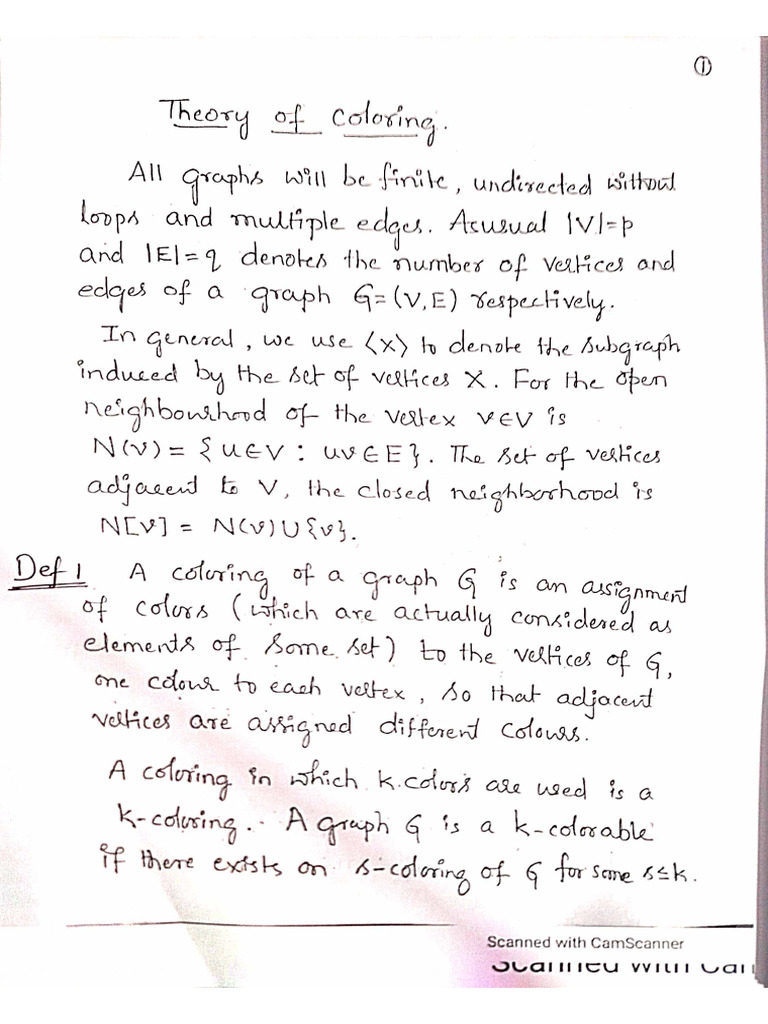 ①
Theory of Coloring.
All graphs will be finite, undirected without
loops and multiple edges. Asusual |V|=p
and |E|=q denotes the number of vertices and
edges of a graph G=(V,E) respectively.
In general, we use ⟨X⟩ to denote the subgraph
induced by the set of vertices X. For the open
neighbourhood of the vertex v∈V is
N(v) = {u∈V : uv∈E}. The set of vertices
adjacent to V, the closed neighborhood is
N[v] = N(v)∪{v}.
Def 1 A coloring of a graph G is an assignment
of colors (which are actually considered as
elements of some set) to the vertices of G,
one colour to each vertex, so that adjacent
vertices are assigned different colours.
A coloring in which k.colors are used is a
k-coloring. A graph G is a k-colorable
if there exists on s-coloring of G for some s≤k.
Scanned with CamScanner